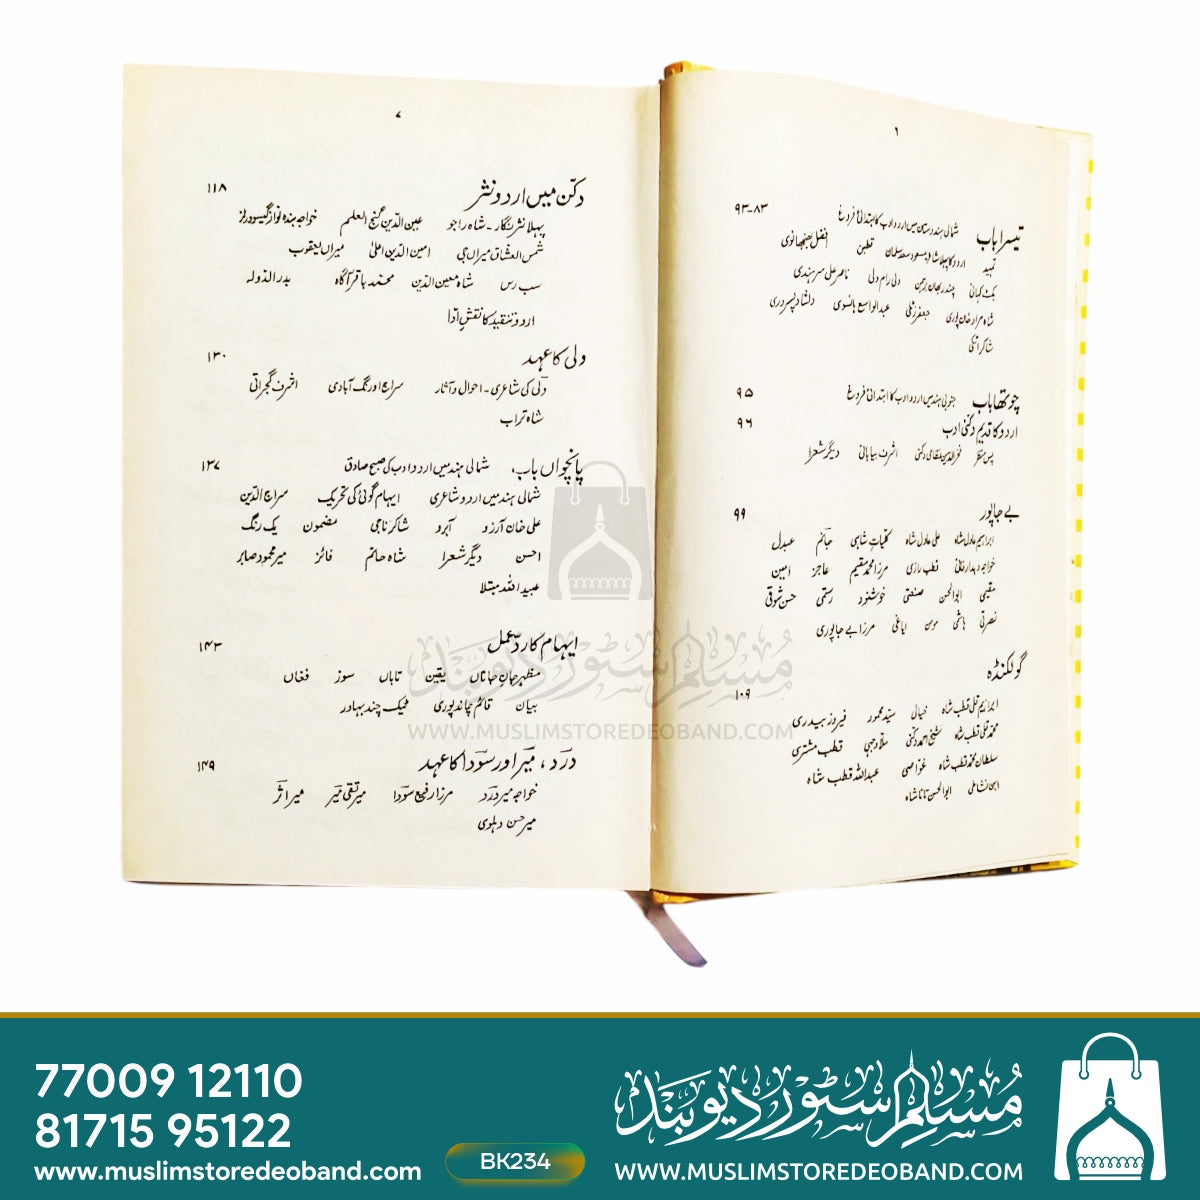 ۶
تیسرا باب شمالی ہندوستان میں اردو ادب کا ابتدائی فروغ ۸۳-۹۳
تمہید اردو کا پہلا شاعر مسعود سعد سلمان قطبن افضل جھنجھانوی
بکٹ کہانی چندر بھان برہمن ولی رام ولی ناصر علی سرہندی
شاہ مراد خان پوری جعفر زٹلی عبدالواسع ہانسوی دلشاد پسروری
شاکر اٹکی
چوتھا باب جنوبی ہند میں اردو ادب کا ابتدائی فروغ ۹۵
اردو کا قدیم دکنی ادب ۹۶
پس منظر فخرالدین نظامی دکنی اشرف بیابانی دیگر شعرا
بے جاپور ۹۹
ابراہیم عادل شاہ علی عادل شاہ کلیاتِ شاہی جانم عبدل
خواجہ دہدار فانی قطب رازی مرزا محمد مقیم عاجز امین
مقیمی ابوالحسن صنعتی خوشنود رستمی حسن شوقی
نصرتی ہاشمی مومن ایاغی مرزا بے جاپوری
گولکنڈہ
۱۰۹
ابراہیم قلی قطب شاہ خیال سیّد محمود فیروز بیدری
محمد قلی قطب شاہ شیخ احمد دکنی ملّا وجہی قطب مشتری
سلطان محمد قطب شاہ غوّاصی عبداللہ قطب شاہ
ابن نشاطی ابوالحسن تانا شاہ
۷
دکن میں اردو نثر ۱۱۸
پہلا نثر نگار۔ شاہ راجو عین الدّین گنج العلم خواجہ بندہ نواز گیسو دراز
شمس العشاق میراں جی امین الدّین اعلیٰ میراں یعقوب
سب رس شاہ معین الدّین محمّد باقر آگاہ بدر الدولہ
اردو تنقید کا نقشِ اوّل
ولی کا عہد ۱۳۰
ولی کی شاعری۔ احوال و آثار سراج اورنگ آبادی اشرف گجراتی
شاہ تراب
پانچواں باب، شمالی ہند میں اردو ادب کی صبح صادق ۱۳۷
شمالی ہند میں اردو شاعری ایہام گوئی کی تحریک سراج الدّین
علی خان آرزو آبرو شاکر ناجی مضمون یک رنگ
احسن دیگر شعرا شاہ حاتم فائز میر محمود صابر
عبید اللہ مبتلا
ایہام کا ردِّ عمل ۱۴۳
مظہر جان جاناں یقین تاباں سوز فغاں
بیان قائم چاند پوری ٹیک چند بہادر
درد، میر اور سودا کا عہد ۱۴۹
خواجہ میر درد مرزا رفیع سودا میر تقی میر میر اثر
میر حسن دہلوی
مسلم سٹور دیوبند
WWW.MUSLIMSTOREDEOBAND.COM
77009 12110
81715 95122
www.muslimstoredeoband.com
BK234
مسلم سٹور دیوبند
WWW.MUSLIMSTOREDEOBAND.COM